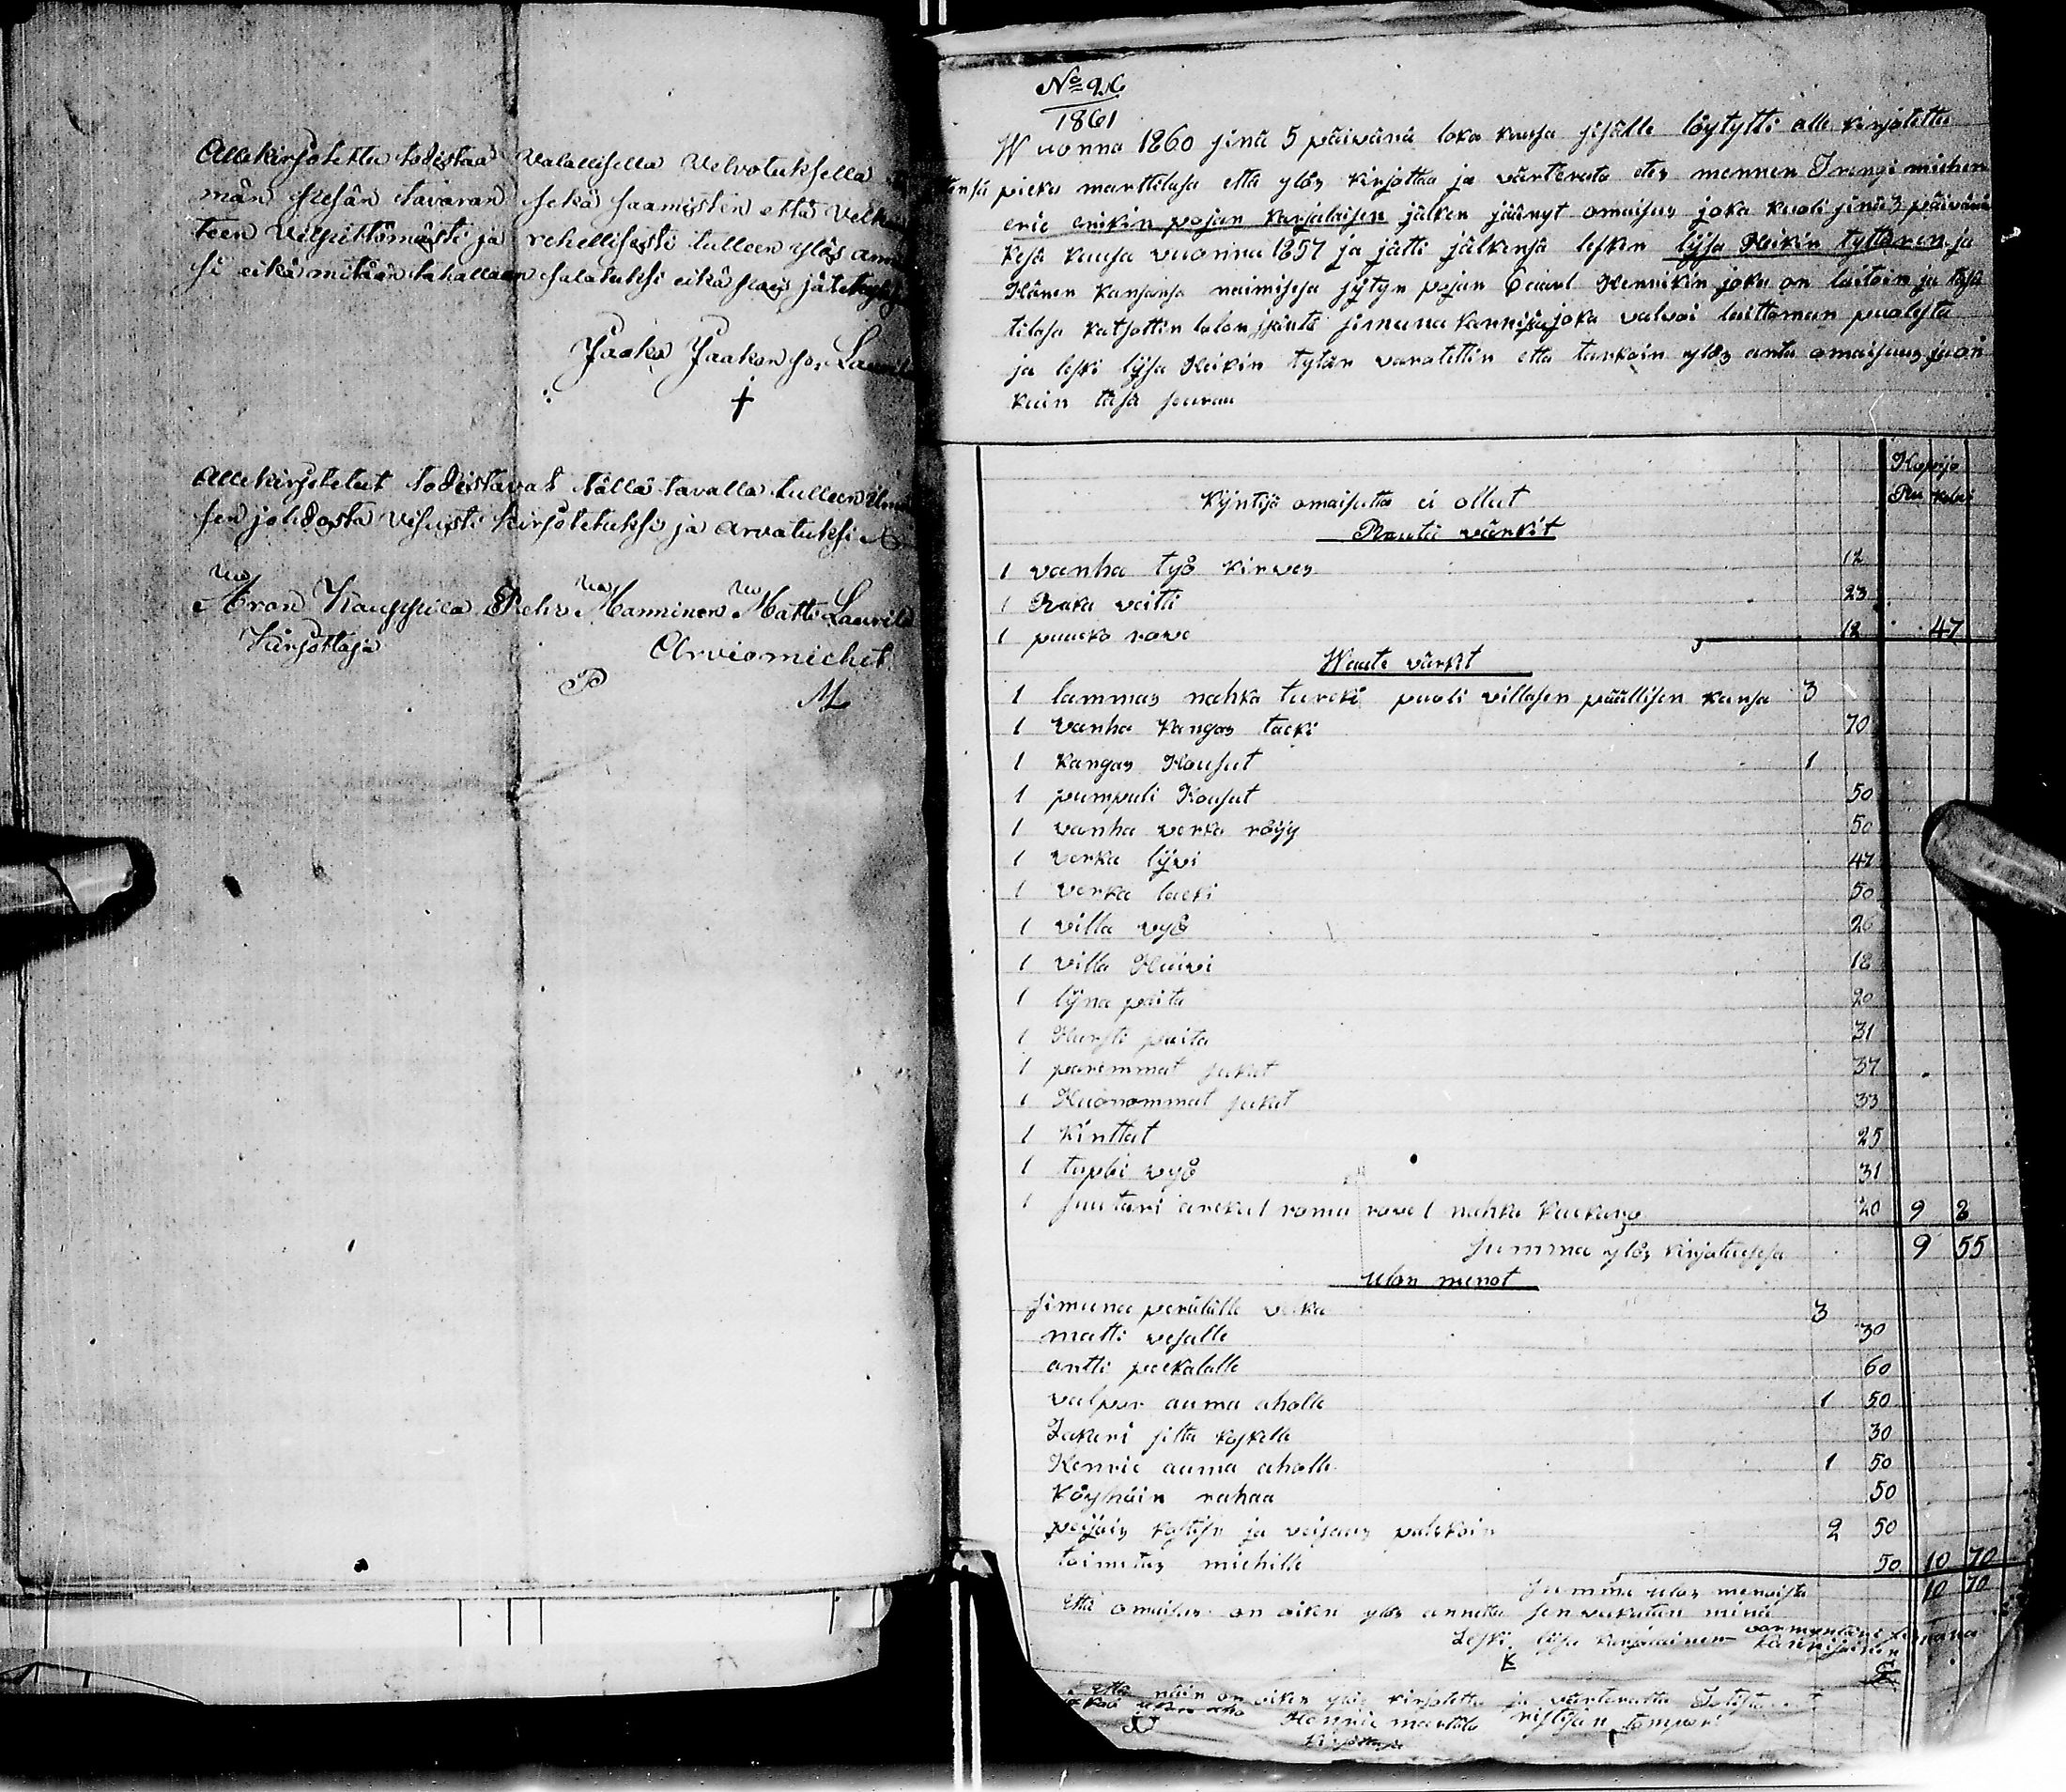 Allekirjotettu todistaa Valallisella Velvotuksella
män pesän tavaran sekä saamisten että
teen Vilpittömästi ja rehellisesti tulleen ylös
si eikä mitään tahallaan salatuksi eikä
Jaako Jaakon
Allekirjotetut todistavat tällä tavalla tulleen
sen johdosta Visusti kirjotetuksi ja arvatuksi
Aron Kauppila Pehr Manninen Matts
Kirjottaja Arviomiehet
P M
No 96
1861
Wuonna 1860 sinä 5 päivänä loka kuusa sisälle löytytti alle kirjotettu
pieka marttilasa että ylös kirjottaa ja värterata edes mennen Trengi miehen
eric erikin pojan karjalaisen jälken jäänyt omaisus joka kuoli sinä 3 päivänä
kesä kuusa vuonna 1857 ja jätti jälkensä lesken lijsa Heikin tyttären ja
Hänen kansansa naimisesa sijtyn pojan Hennikin joka on laitoin ja täsä
tilasa katsottin simuna joka valvoi laittoman puolesta
ja leski lijsa Heikin tytär varotettin että tarkoin ylös anta omaisuus
kuin täsä seuraa
Kopeja
Ru
kijntijä omaisutta ei ollut
Rauta värkit
1 vanha työ kirves 12
1 Raka veitti 23
1 puuko rove 12 47
Waate värkit
1 lammas nahka turcki puoli villasen päällisen kansa 3
1 vanha kangas tacki 70
1 kangas Housut 1
1 pumpuli Housut 50
1 vanha verka röijy 50
1 verka lijvi 47
1 verka lacki 50
1 villa vyö 26
1 villa Huivi 18
1 lijna paita 20
1 Hursti paita 31
1 paremmat sukat 37
1 Huonommat sukat 33
1 kinttat 25
1 tuppi vyö 31
1 suutari 1 romu rove 1 nahka kuckaro 20 9 8
summa ylös kirjotuxesa 9 55
ulos menot
simuna perälälle velka 3
matti vesalle 30
antti peckalalle 60
valpur auma aholle 1 50
Zakari silta koskelle 30
Henric auma aholle 1 50
köyhäin rahaa 50
peijais kostisn ja veisaus palckoin 2 50
toimitus miehille 50 10 70
summa ulos menoista 10 70
että omaisus on oiken ylös annettu sen vakutan minä
Leski lijsa karjalainen simuna
K
että näin on oiken ylös kirjotettu ja värteerattu
Henric marttila
kirjottaja